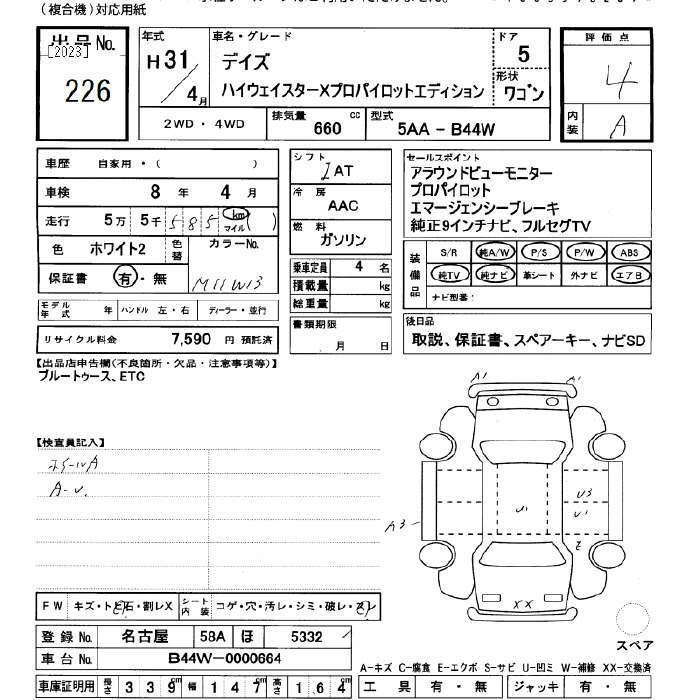 (複合機)対応用紙
出品No.
[2023]
226
年式
H 31 / 4月
車名・グレード
デイズ
ハイウェイスターXプロパイロットエディション
ドア
5
形状
ワゴン
2WD・4WD
排気量 660 cc
型式 5AA - B44W
評価点
4
内装 A
車歴 自家用・( )
車検 8年 4月
走行 5万 5千 585 km マイル ( )
色 ホワイト2 色替 カラーNo.
保証書 有・無
モデル年式 年 ハンドル 左・右 ディーラー・並行
リサイクル料金 7,590 円 預託済
シフト IAT
冷房 AAC
燃料 ガソリン
乗車定員 4 名
積載量 kg
総重量 kg
書類期限
月 日
セールスポイント
アラウンドビューモニター
プロパイロット
エマージェンシーブレーキ
純正9インチナビ、フルセグTV
装備品
S/R 純A/W P/S P/W ABS
純TV 純ナビ 革シート 外ナビ エアB
ナビ型番:
後日品
取説、保証書、スペアーキー、ナビSD
【出品店申告欄(不良箇所・欠品・注意事項等)】
ブルートゥース、ETC
【検査員記入】
A-U.
A1 A1
U3
U1 U1
A3
E
XX
スペア
FW キズ・トビ石・割レX シート内装 コゲ・穴・汚レ・シミ・破レ・スレ
登録No. 名古屋 58A ほ 5332
車台No. B44W-0000664
車庫証明用 長さ 339cm 幅 147cm 高さ 164cm
A-キズ C-腐食 E-エクボ S-サビ U-凹ミ W-補修 XX-交換済
工具 有・無 ジャッキ 有・無